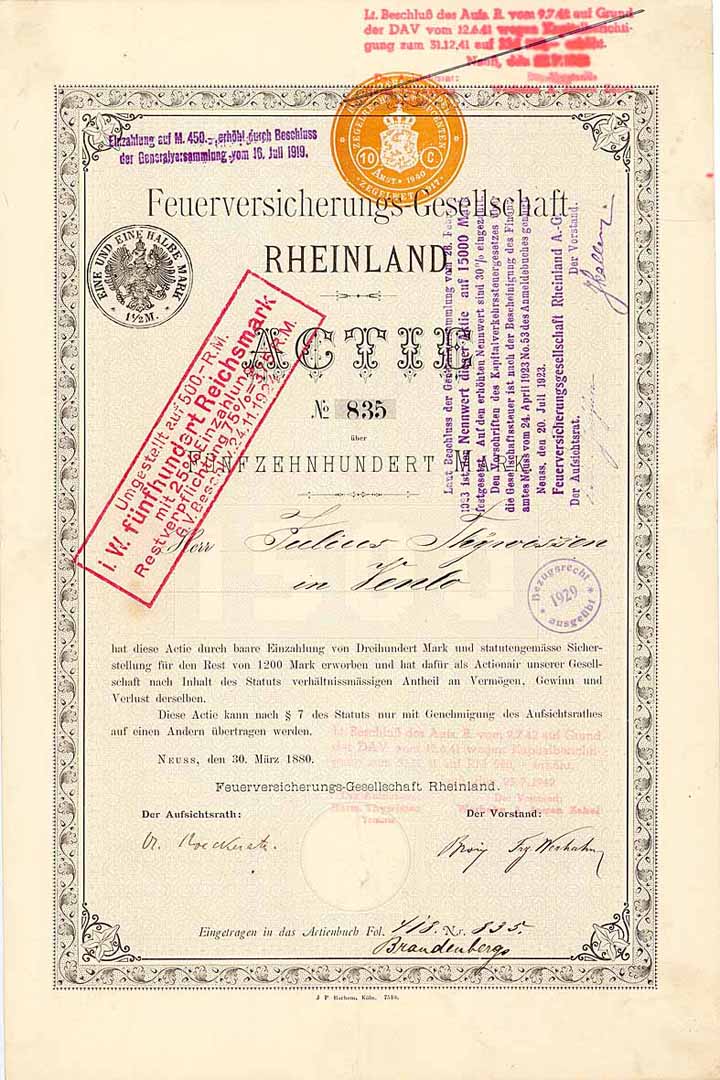 Lt. Beschluß des Aufs. R. vom 9.7.42 auf Grund
der DAV vom 12.6.41 wegen Kapitalberichti-
gung zum 31.12.41 auf
Neuss, den
Einzahlung auf M. 450.- erhöht durch Beschluss
der Generalversammlung vom 16. Juli 1919.
10 C
ZEGELWET 1917
Feuerversicherungs-Gesellschaft
RHEINLAND
EINE UND EINE HALBE MARK
1½ M.
ACTIE
No 835
über
FÜNFZEHNHUNDERT MARK
Umgestellt auf 500.- R.M.
i. W. fünfhundert Reichsmark
mit 25% Einzahlung
Restverpflichtung 75% = 375 R.M.
G.V. Beschl. 24.11.
Laut Beschluss der Generalversammlung vom 28.
1923 ist der Nennwert dieser Aktie auf 15000 Mark
festgesetzt. Auf den erhöhten Nennwert sind 30% eingezahlt.
Den Vorschriften des Kapitalverkehrssteuergesetzes
die Gesellschaftssteuer ist nach der Bescheinigung des Finanz-
amtes Neuss vom 24. April 1923 No 53 des Anmeldebuches
Neuss, den 20. Juli 1923.
Feuerversicherungsgesellschaft Rheinland A.-G.
Der Aufsichtsrat. Der Vorstand.
Herr Julius Thÿwissen
in Venlo
Bezugsrecht
1929
ausgeübt
hat diese Actie durch baare Einzahlung von Dreihundert Mark und statutengemässe Sicher-
stellung für den Rest von 1200 Mark erworben und hat dafür als Actionair unserer Gesell-
schaft nach Inhalt des Statuts verhältnissmässigen Antheil an Vermögen, Gewinn und
Verlust derselben.
Diese Actie kann nach § 7 des Statuts nur mit Genehmigung des Aufsichtsrathes
auf einen Andern übertragen werden.
Lt. Beschluß des Aufs. R. vom 9.7.42 auf Grund
der DAV vom 12.6.41 wegen Kapitalberichti-
gung zum 31.12.41 auf RM
Neuss, den 30. März 1880.
Feuerversicherungs-Gesellschaft Rheinland.
Der Aufsichtsrath: Der Vorstand:
Eingetragen in das Actienbuch Fol. 418. Nr. 835.
Brandenberg
J P Bachem, Köln.